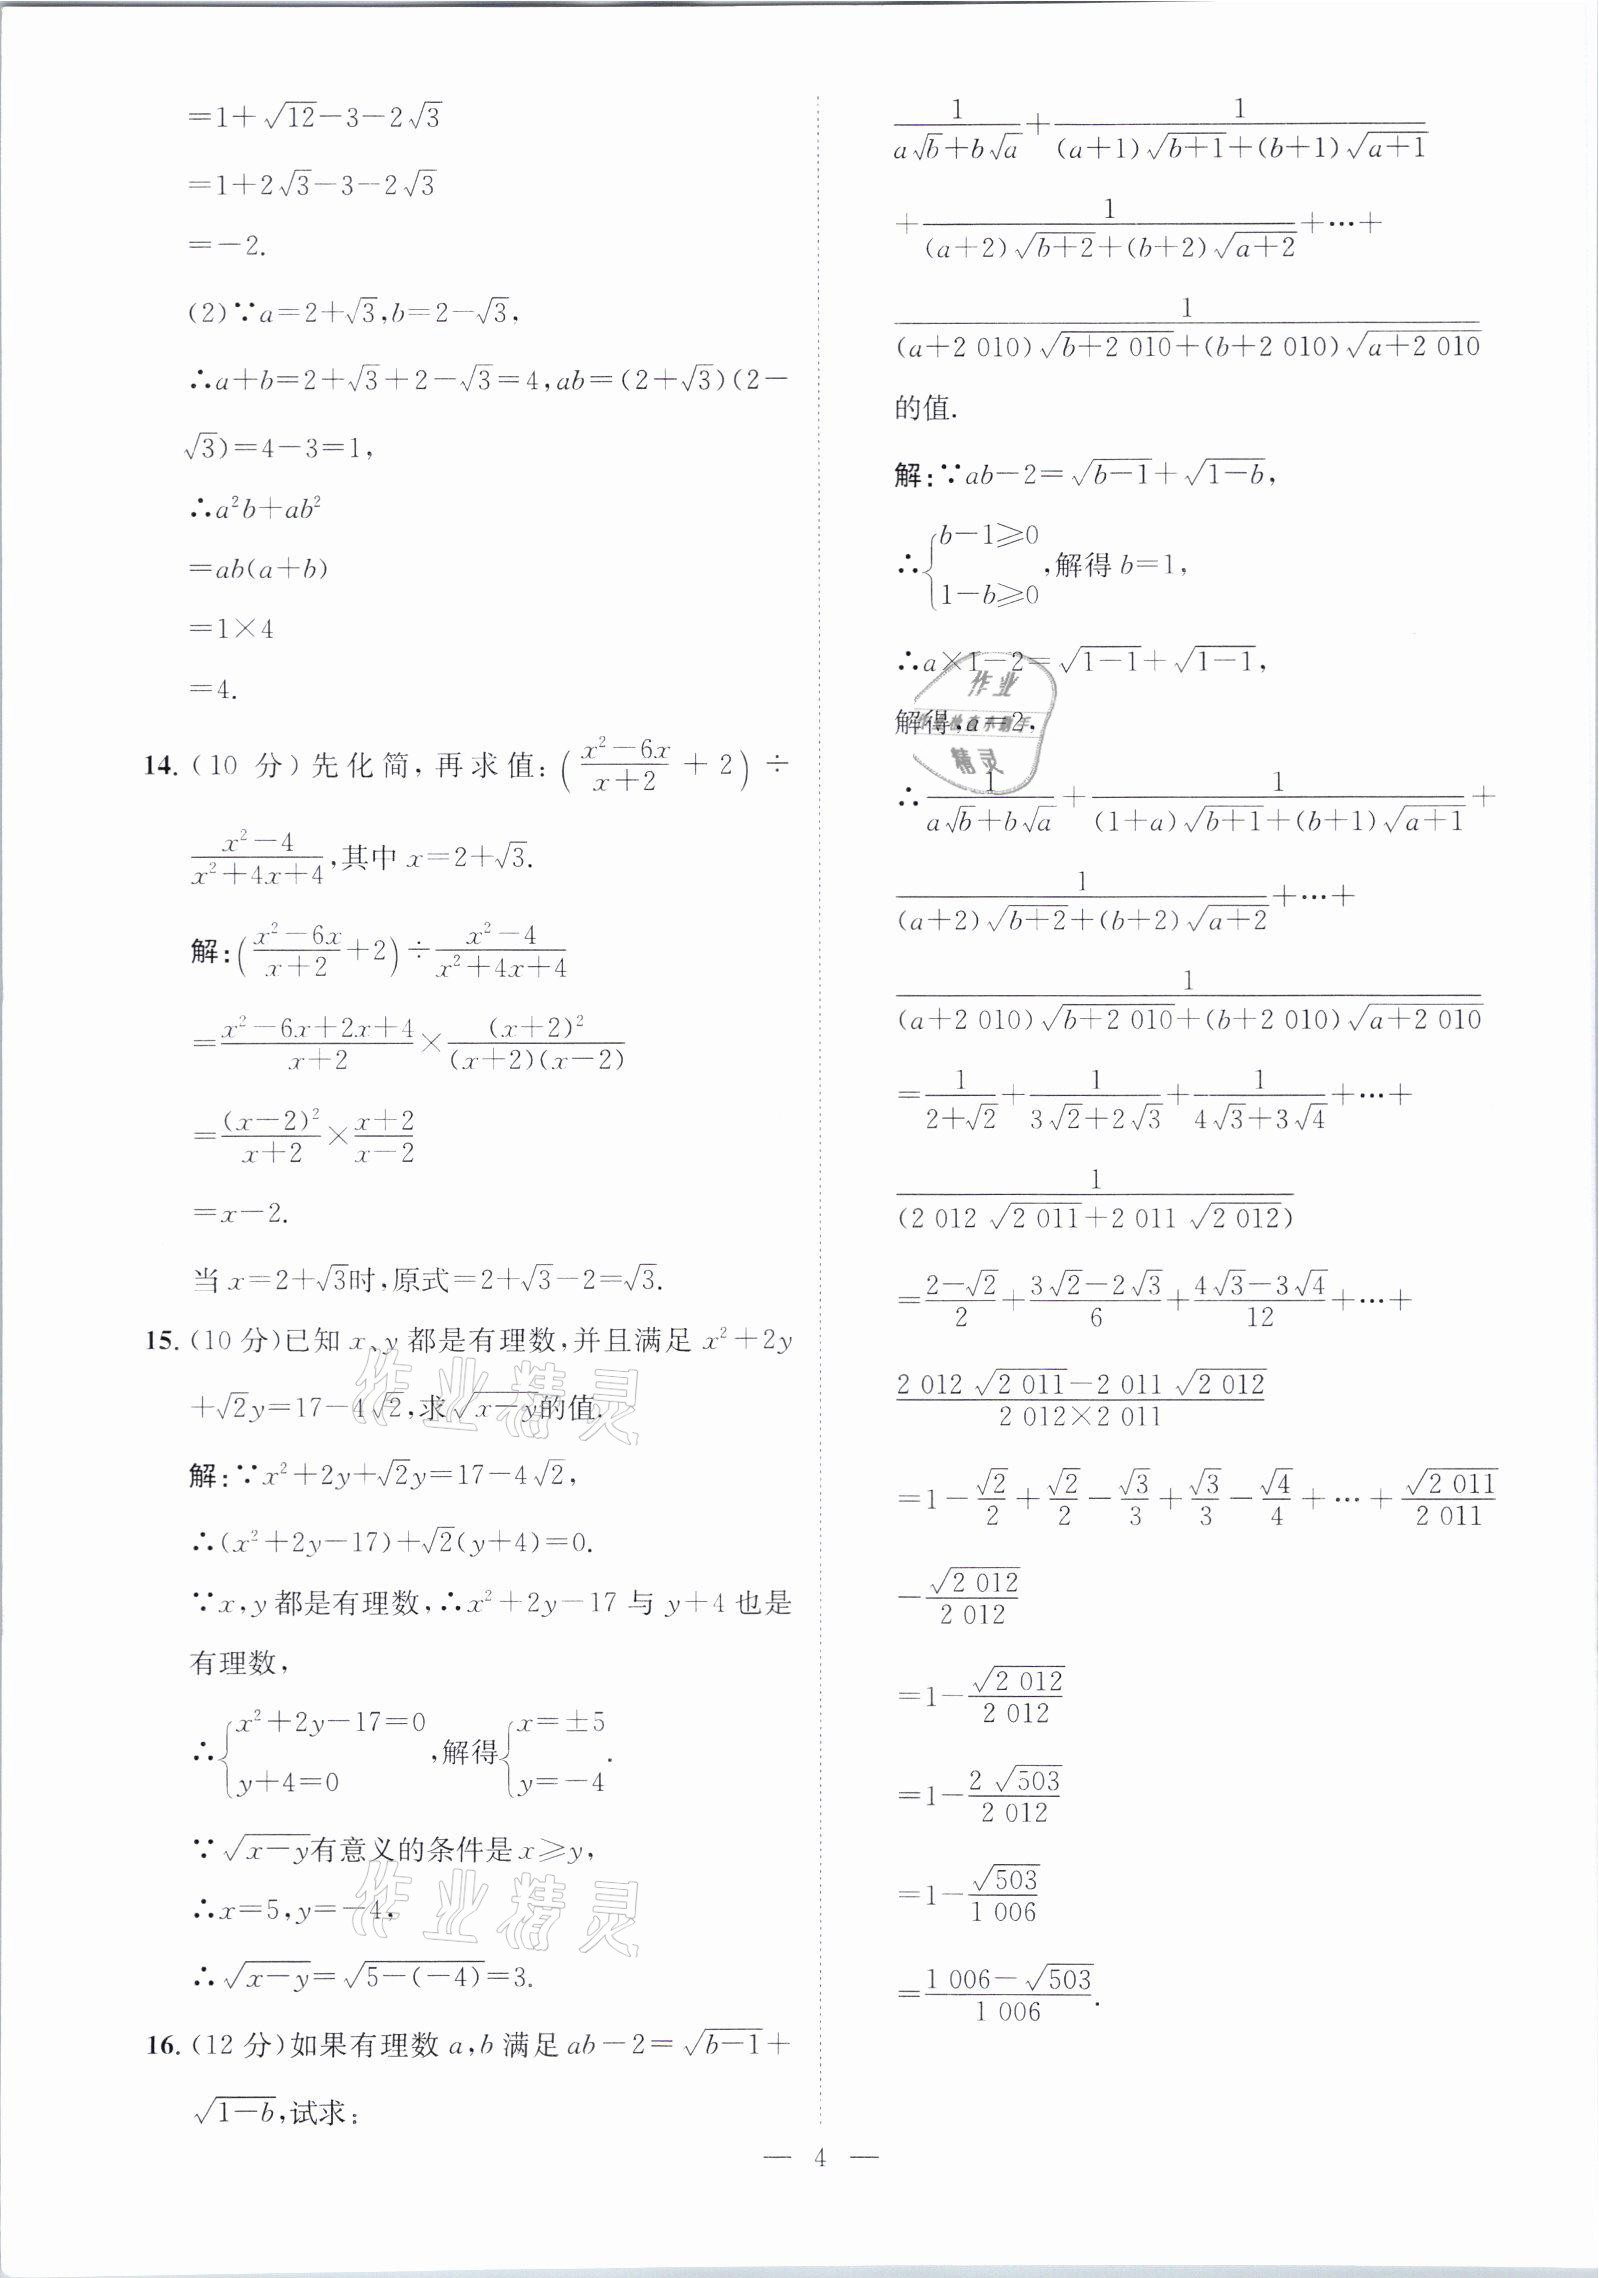 =1+√12-3-2√3
=1+2√3-3-2√3
=-2.
(2)∵a=2+√3,b=2-√3,
∴a+b=2+√3+2-√3=4,ab=(2+√3)(2-
√3)=4-3=1,
∴a²b+ab²
=ab(a+b)
=1×4
=4.
14.(10 分)先化简,再求值:((x²-6x)/(x+2)+2)÷
(x²-4)/(x²+4x+4),其中 x=2+√3.
解:((x²-6x)/(x+2)+2)÷(x²-4)/(x²+4x+4)
=(x²-6x+2x+4)/(x+2)×(x+2)²/((x+2)(x-2))
=(x-2)²/(x+2)×(x+2)/(x-2)
=x-2.
当 x=2+√3时,原式=2+√3-2=√3.
15.(10 分)已知 x、y 都是有理数,并且满足 x²+2y
+√2y=17-4√2,求√(x-y)的值.
解:∵x²+2y+√2y=17-4√2,
∴(x²+2y-17)+√2(y+4)=0.
∵x,y 都是有理数,∴x²+2y-17 与 y+4 也是
有理数,
∴{x²+2y-17=0 y+4=0,解得{x=±5 y=-4.
∵√(x-y)有意义的条件是 x≥y,
∴x=5,y=-4,
∴√(x-y)=√(5-(-4))=3.
16.(12 分)如果有理数 a,b 满足 ab-2=√(b-1)+
√(1-b),试求:
1/(a√b+b√a)+1/((a+1)√(b+1)+(b+1)√(a+1))
+1/((a+2)√(b+2)+(b+2)√(a+2))+…+
1/((a+2 010)√(b+2 010)+(b+2 010)√(a+2 010))
的值.
解:∵ab-2=√(b-1)+√(1-b),
∴{b-1≥0 1-b≥0,解得 b=1,
∴a×1-2=√(1-1)+√(1-1),
解得,a=2,
∴1/(a√b+b√a)+1/((1+a)√(b+1)+(b+1)√(a+1))+
1/((a+2)√(b+2)+(b+2)√(a+2))+…+
1/((a+2 010)√(b+2 010)+(b+2 010)√(a+2 010))
=1/(2+√2)+1/(3√2+2√3)+1/(4√3+3√4)+…+
1/(2 012√(2 011)+2 011√(2 012))
=(2-√2)/2+(3√2-2√3)/6+(4√3-3√4)/12+…+
(2 012√(2 011)-2 011√(2 012))/(2 012×2 011)
=1-√2/2+√2/2-√3/3+√3/3-√4/4+…+√(2 011)/2 011
-√(2 012)/2 012
=1-√(2 012)/2 012
=1-2√503/2 012
=1-√503/1 006
=(1 006-√503)/1 006.
— 4 —
作业
精灵
作业精灵
作业精灵